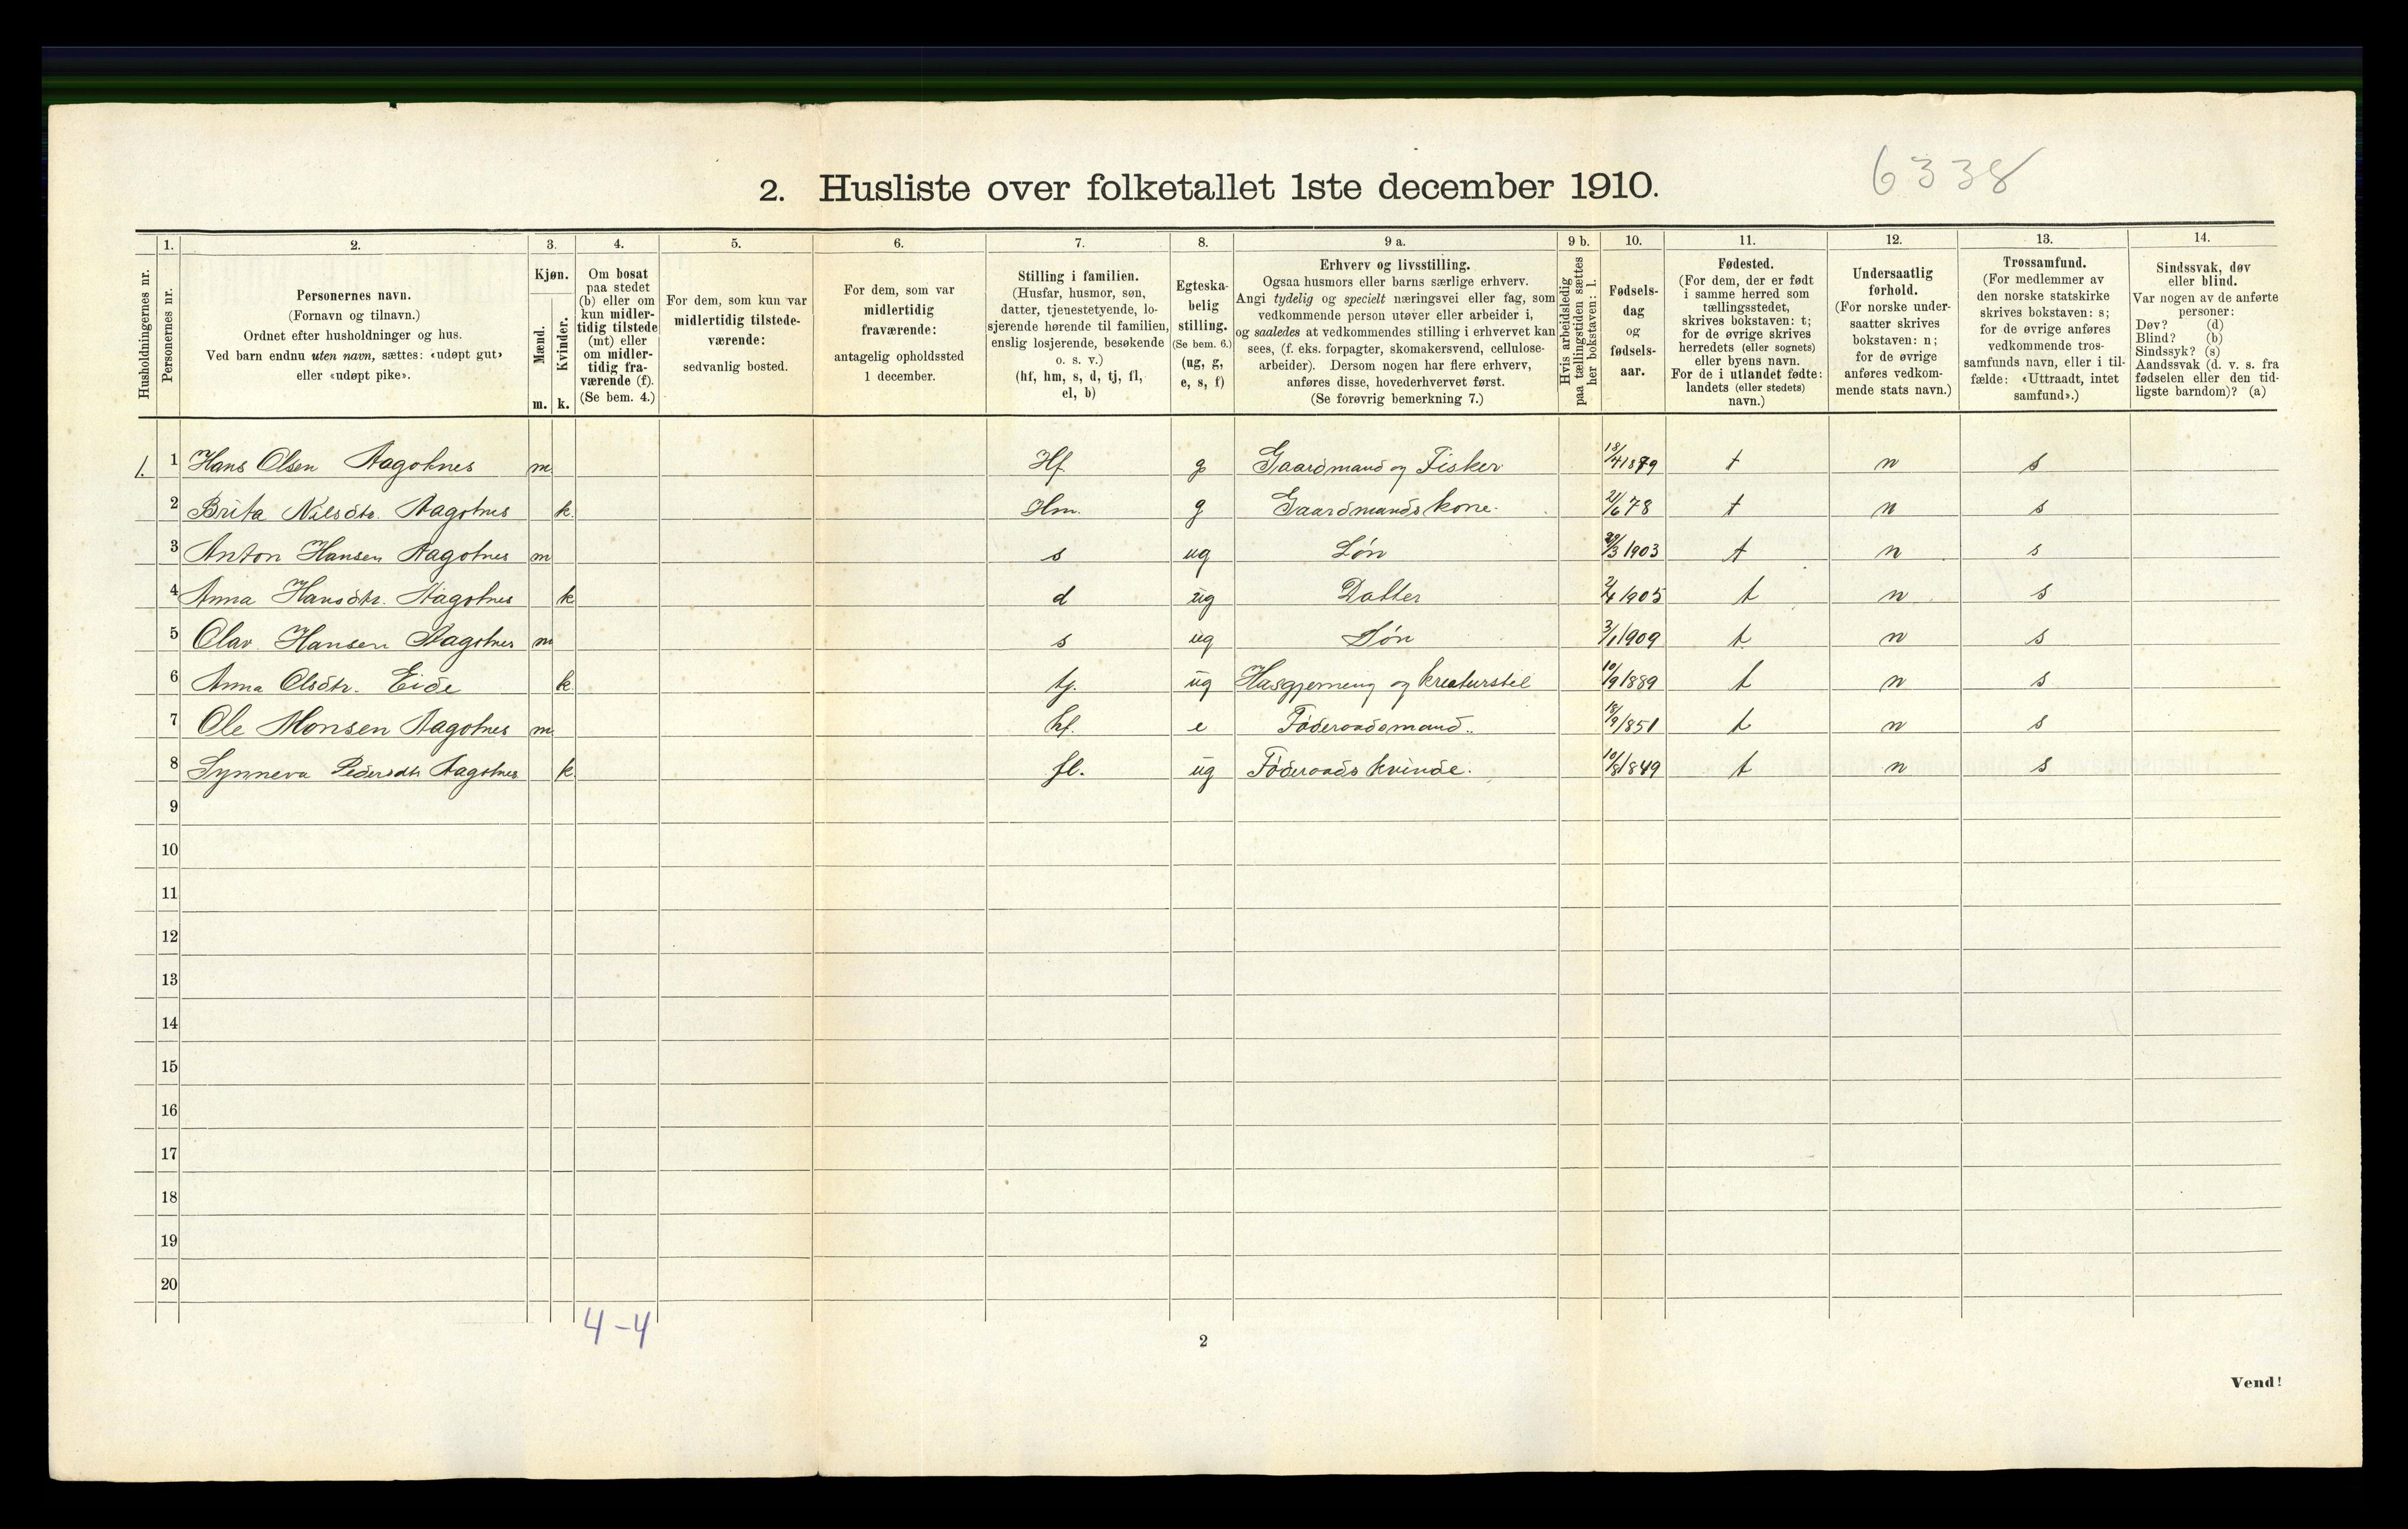 6338
2. Husliste over folketallet 1ste december 1910.
1. 2. 3. 4. 5. 6. 7. 8. 9 a. 9 b. 10. 11. 12. 13. 14.
Husholdningernes nr.
Personernes nr.
Personernes navn.
(Fornavn og tilnavn.)
Ordnet efter husholdninger og hus.
Ved barn endnu uten navn, sættes: «udøpt gut»
eller «udøpt pike».
Kjøn.
Mænd.
Kvinder.
m. k.
Om bosat
paa stedet
(b) eller om
kun midler-
tidig tilstede
(mt) eller
om midler-
tidig fra-
værende (f).
(Se bem. 4.)
For dem, som kun var
midlertidig tilstede-
værende:
sedvanlig bosted.
For dem, som var
midlertidig
fraværende:
antagelig opholdssted
1 december.
Stilling i familien.
(Husfar, husmor, søn,
datter, tjenestetyende, lo-
sjerende hørende til familien,
enslig losjerende, besøkende
o. s. v.)
(hf, hm, s, d, tj, fl,
el, b)
Egteska-
belig
stilling.
(Se bem. 6.)
(ug, g,
e, s, f)
Erhverv og livsstilling.
Ogsaa husmors eller barns særlige erhverv.
Angi tydelig og specielt næringsvei eller fag, som
vedkommende person utøver eller arbeider i,
og saaledes at vedkommendes stilling i erhvervet kan
sees, (f. eks. forpagter, skomakersvend, cellulose-
arbeider). Dersom nogen har flere erhverv,
anføres disse, hovederhvervet først.
(Se forøvrig bemerkning 7.)
Hvis arbeidsledig
paa tællingstiden sættes
her bokstaven: l.
Fødsels-
dag
og
fødsels-
aar.
Fødested.
(For dem, der er født
i samme herred som
tællingsstedet,
skrives bokstaven: t;
for de øvrige skrives
herredets (eller sognets)
eller byens navn.
For de i utlandet fødte:
landets (eller stedets)
navn.)
Undersaatlig
forhold.
(For norske under-
saatter skrives
bokstaven: n;
for de øvrige
anføres vedkom-
mende stats navn.)
Trossamfund.
(For medlemmer av
den norske statskirke
skrives bokstaven: s;
for de øvrige anføres
vedkommende tros-
samfunds navn, eller i til-
fælde: «Uttraadt, intet
samfund».)
Sindssvak, døv
eller blind.
Var nogen av de anførte
personer:
Døv? (d)
Blind? (b)
Sindssyk? (s)
Aandssvak (d. v. s. fra
fødselen eller den tid-
ligste barndom)? (a)
1. 1 Hans Olsen Aagotnes m Hf. g Gaardmand og Fisker 18/4 1879 t n s
2 Brita Nilsdtr. Aagotnes k. Hm. g Gaardmands kone. 21/6 78 t n s
3 Anton Hansen Aagotnes m s ug Søn 1903 t n s
4 Anna Hansdtr. Aagotnes k d ug Datter 1905 t n s
5 Olav Hansen Aagotnes m s ug Søn 3/1 1909 t n s
6 Anna Olsdtr. Eide k tj. ug Husgjerning og kreaturstel 10/9 1889 t n s
7 Ole Monsen Aagotnes m hf. e Føderaadsmand. 18/9 1851 t n s
8 Synneva Pedersdtr Aagotnes k fl. ug Føderaads kvinde. 10/8 1849 t n s
9
10
11
12
13
14
15
16
17
18
19
20
4-4
2
Vend!